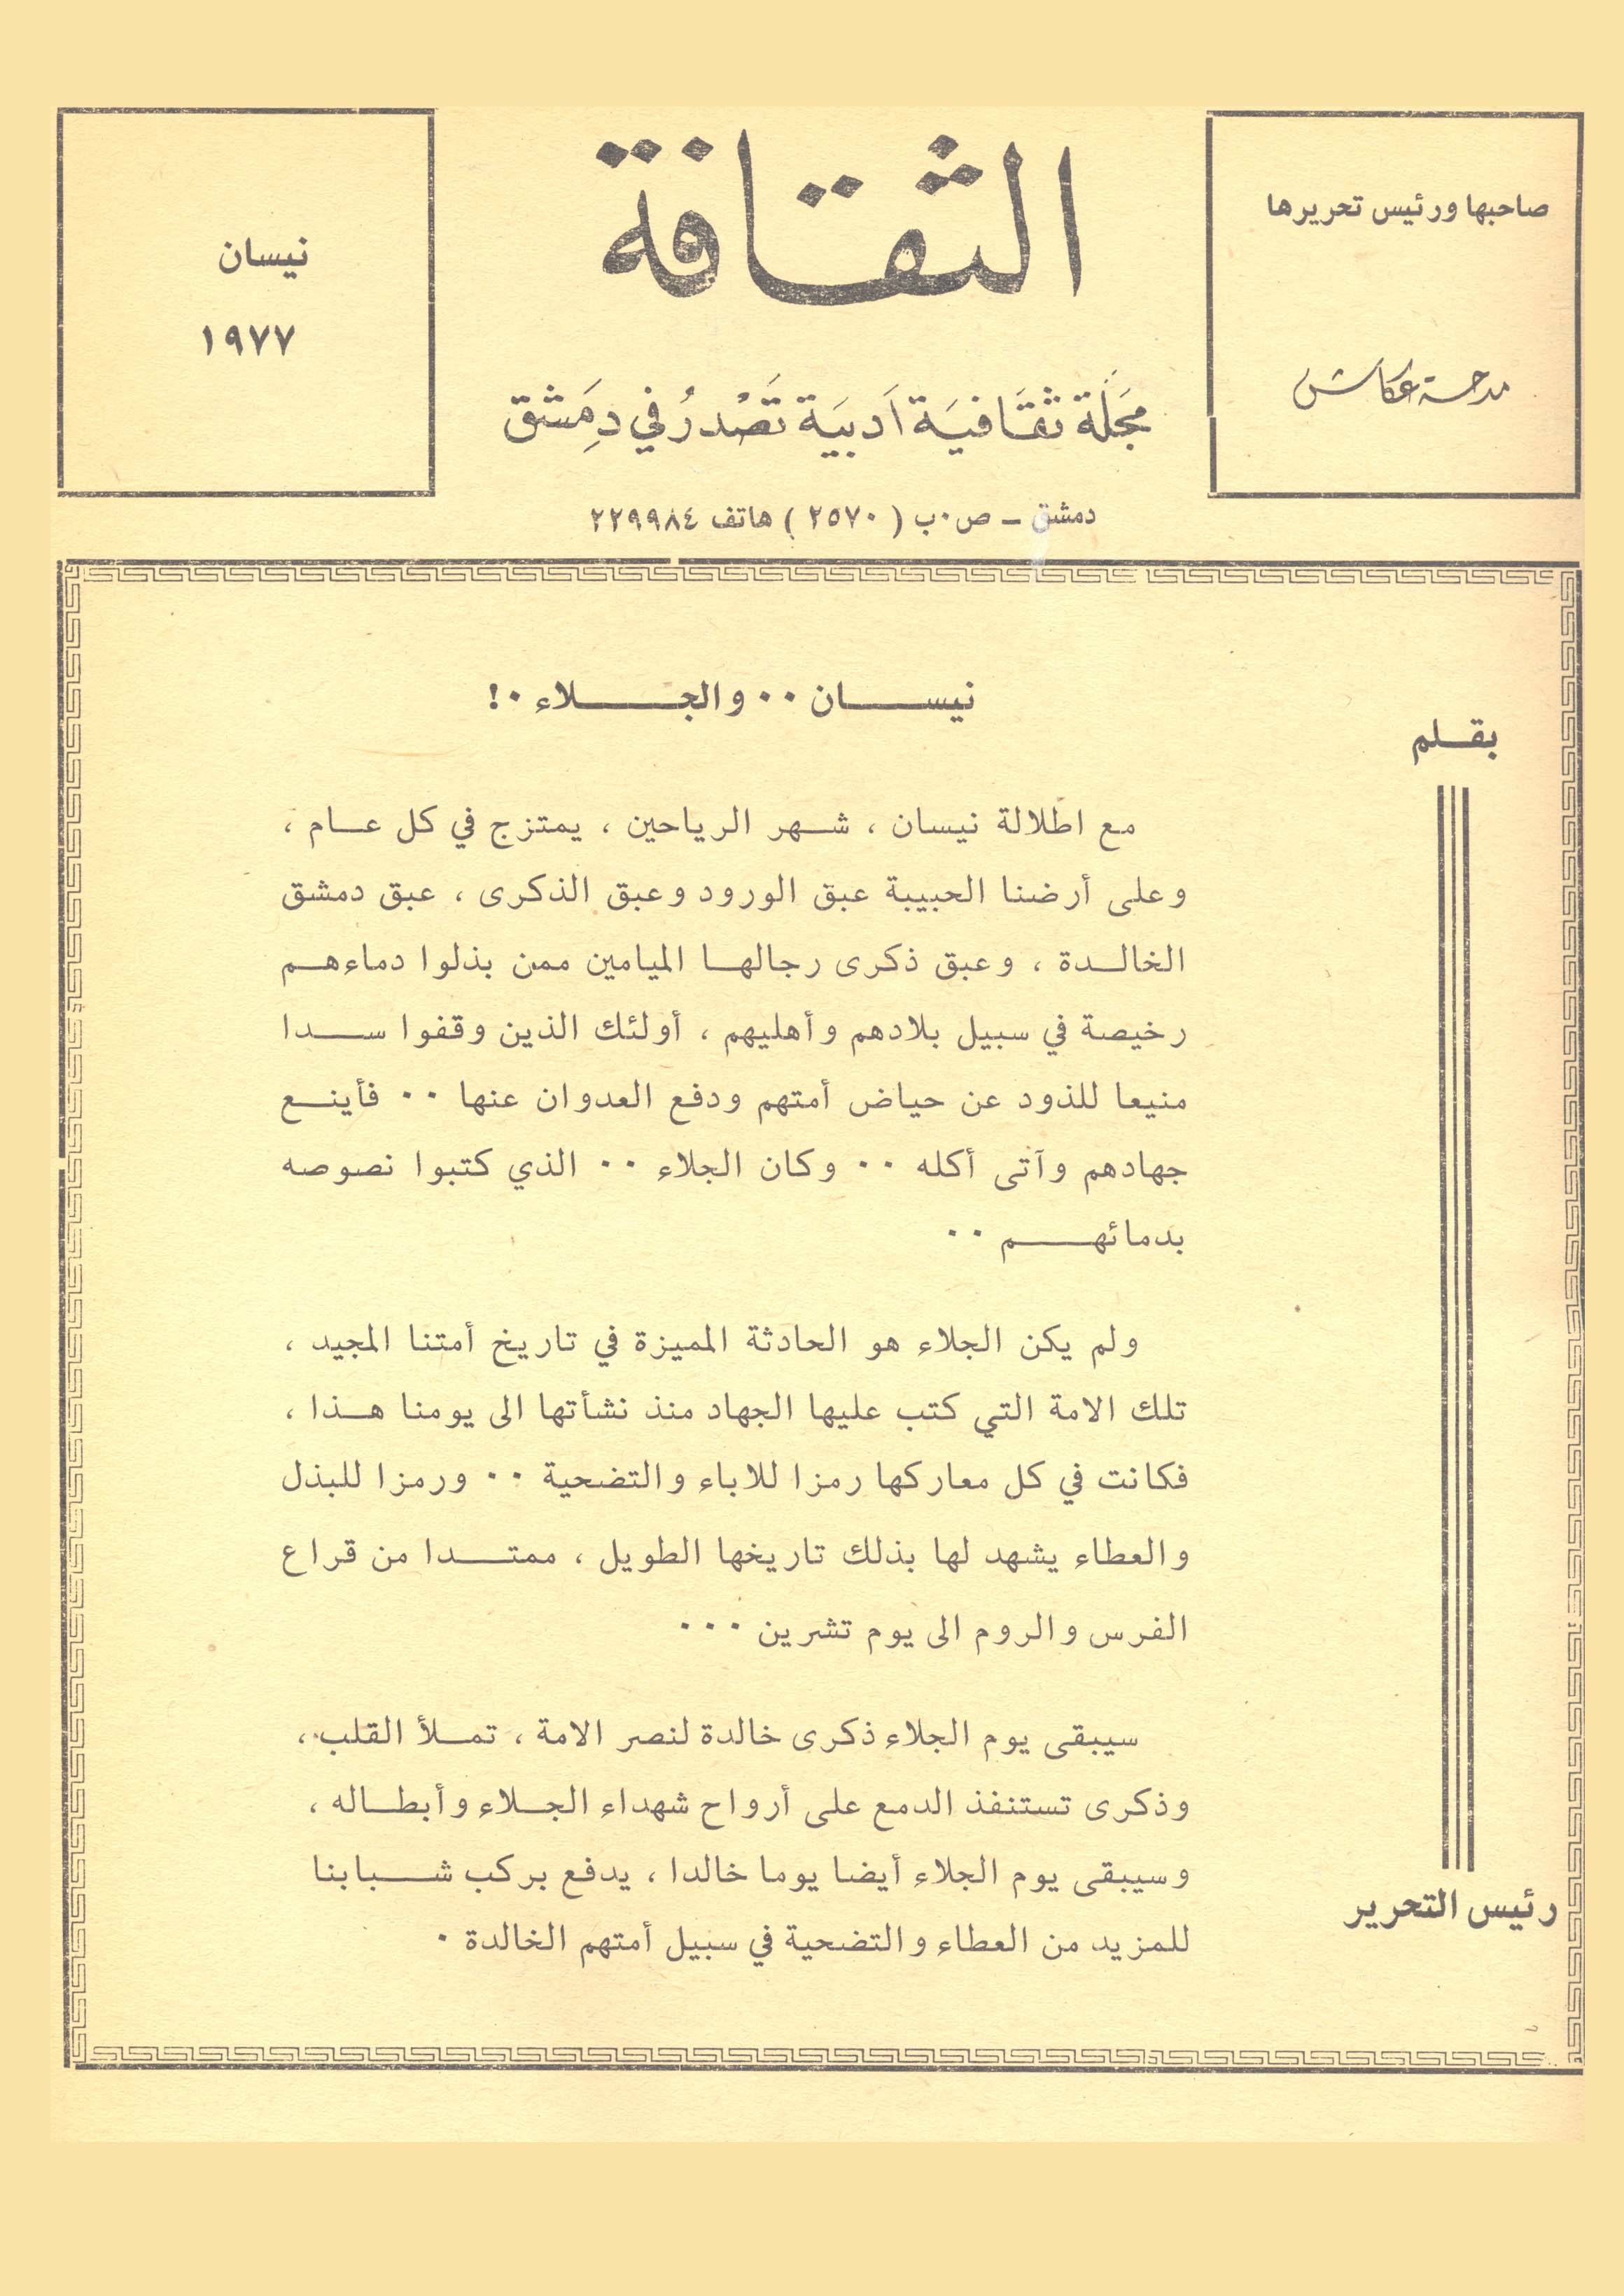 صاحبها ورئيس تحريرها
مدحة عكاش
الثقافة
مَجَلّة ثقَافيَة اَدبيَة تَصْدرُ في دِمَشق
دمشق ــ ص٠ب ( ٢٥٧٠ ) هاتف ٢٢٩٩٨٤
نيسان
١٩٧٧
نيســـان ٠٠ والجـــلاء ٠!
بقـلم
رئيس التحرير
مع اطلالة نيسان ، شـهر الرياحين ، يمتزج في كل عـام ،
وعلى أرضنا الحبيبة عبق الورود وعبق الذكرى ، عبق دمشق
الخالـدة ، وعبق ذكرى رجالهـا الميامين ممن بذلوا دماءهـم
رخيصة في سبيل بلادهم وأهليهم ، أولئك الذين وقفوا سـدا
منيعا للذود عن حياض أمتهم ودفع العدوان عنها ٠٠ فأينـع
جهادهم وآتى أكله ٠٠ وكان الجلاء ٠٠ الذي كتبوا نصوصه
بدمائهـــم ٠٠
ولم يكن الجلاء هو الحادثة المميزة في تاريخ أمتنا المجيد ،
تلك الامة التي كتب عليها الجهاد منذ نشأتها الى يومنا هـذا ،
فكانت في كل معاركها رمزا للاباء والتضحية ٠٠ ورمزا للبذل
والعطاء يشهد لها بذلك تاريخها الطويل ، ممتــدا من قراع
الفرس والروم الى يوم تشرين ٠٠٠
سيبقى يوم الجلاء ذكرى خالدة لنصر الامة ، تمـلأ القلب ،
وذكرى تستنفذ الدمع على أرواح شهداء الجـلاء وأبطـاله ،
وسيبقى يوم الجلاء أيضا يوما خالدا ، يدفع بركب شــبابنا
للمزيد من العطاء والتضحية في سبيل أمتهم الخالدة ٠